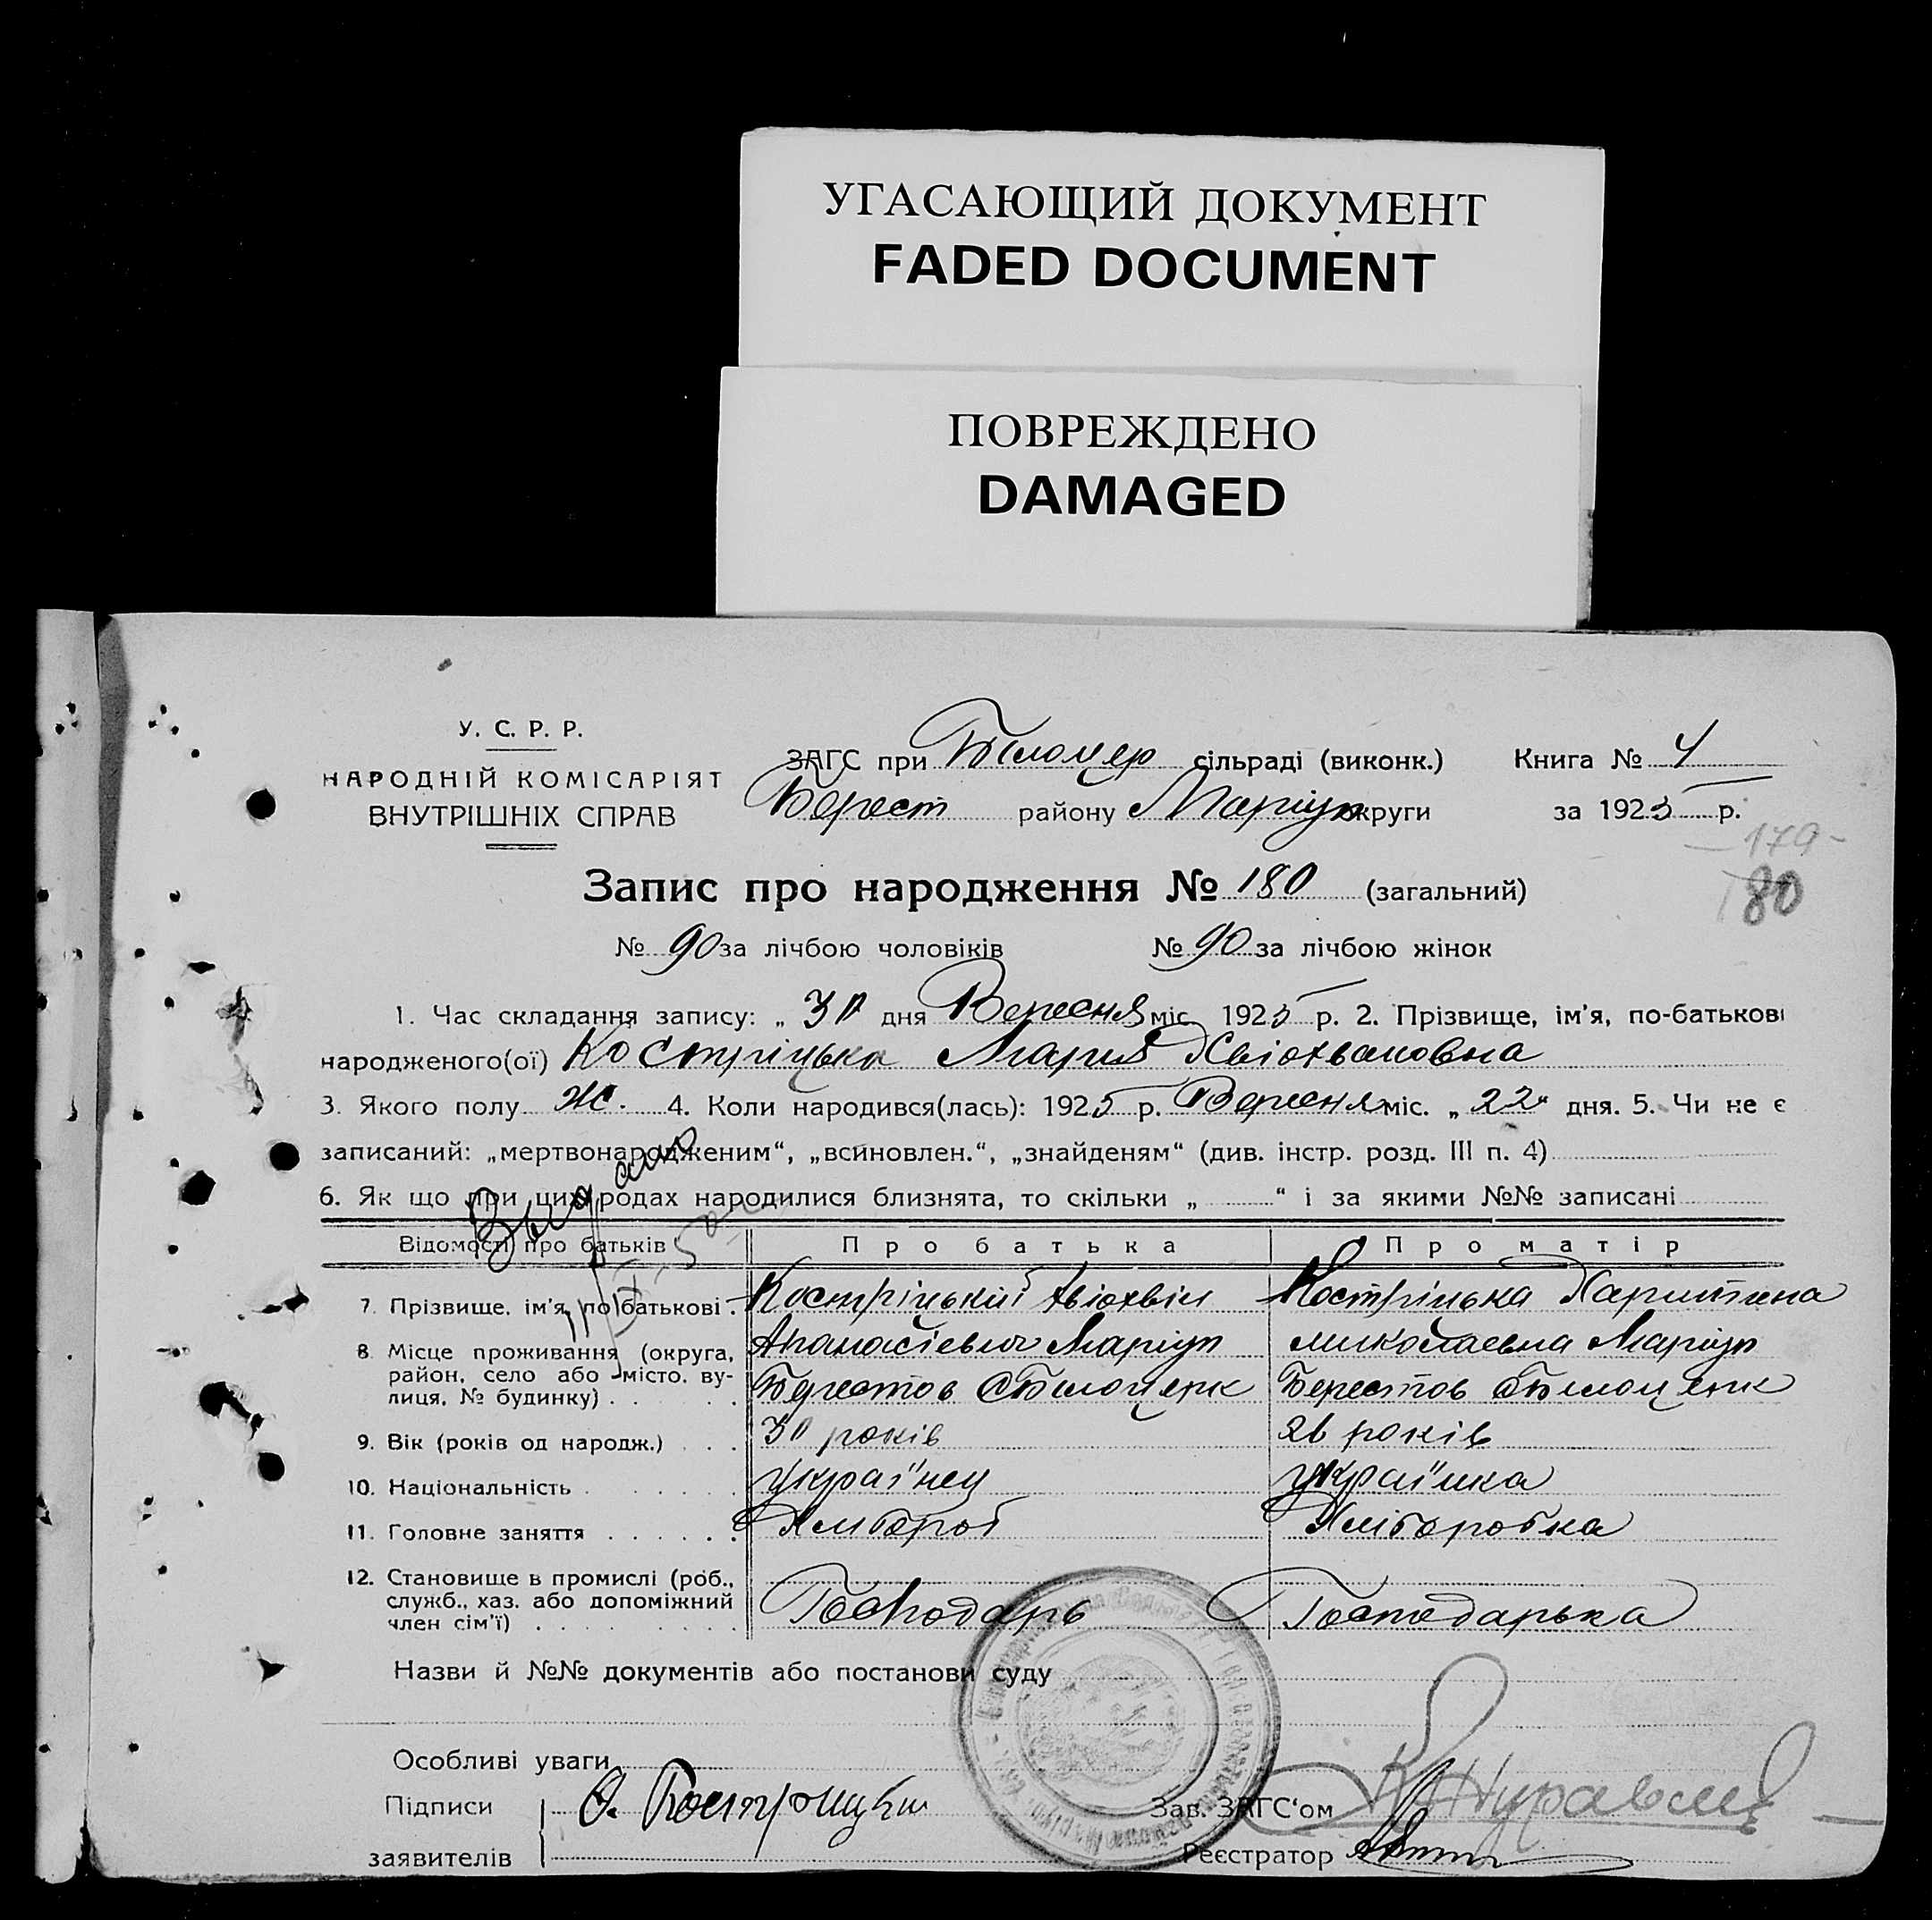 УГАСАЮЩИЙ ДОКУМЕНТ
FADED DOCUMENT
ПОВРЕЖДЕНО
DAMAGED
У. С. Р. Р.
НАРОДНІЙ КОМІСАРІЯТ
ВНУТРІШНІХ СПРАВ
ЗАГС при Білоцер сільраді (виконк.) Книга № 4
Берест району Маріуп округи за 1925 р.
179
180
Запис про народження № 180 (загальний)
№ 90 за лічбою чоловіків № 90 за лічбою жінок
1. Час складання запису: „ 30 дня Вересня міс. 1925 р. 2. Прізвище, ім'я, по-батькові
народженого(ої) Костріцька Мария
3. Якого полу ж. 4. Коли народився(лась): 1925 р. Вересня міс. „ 22 “ дня. 5. Чи не є
записаний: „мертвонародженим“, „всиновлен.“, „знайденям“ (див. інстр. розд. III п. 4)
6. Як що при цих родах народилися близнята, то скільки „ “ і за якими №№ записані
Відомості про батьків Про батька Про матір
7. Прізвище, ім'я, по батькові . Костріцький Костріцька Харитина
8. Місце проживання (округа, Апанасієвич Маріуп миколаевна Маріуп
район, село або місто, ву- Берестов с Білоцерк Берестов с Білоцерк
лиця, № будинку) . . . . .
9. Вік (років од народж.) . . . 30 років 26 років
10. Національність . . . . . . украї'нец украї'нка
11. Головне заняття . . . . . . Хлібороб Хліборобка
12. Становище в промислі (роб.,
служб., хаз. або допоміжний Господарь Господарька
член сім'ї) . . . . . . . . .
Назви й №№ документів або постанови суду
Особливі уваги
Підписи
заявителів
Зав. ЗАГС'ом
Реєстратор